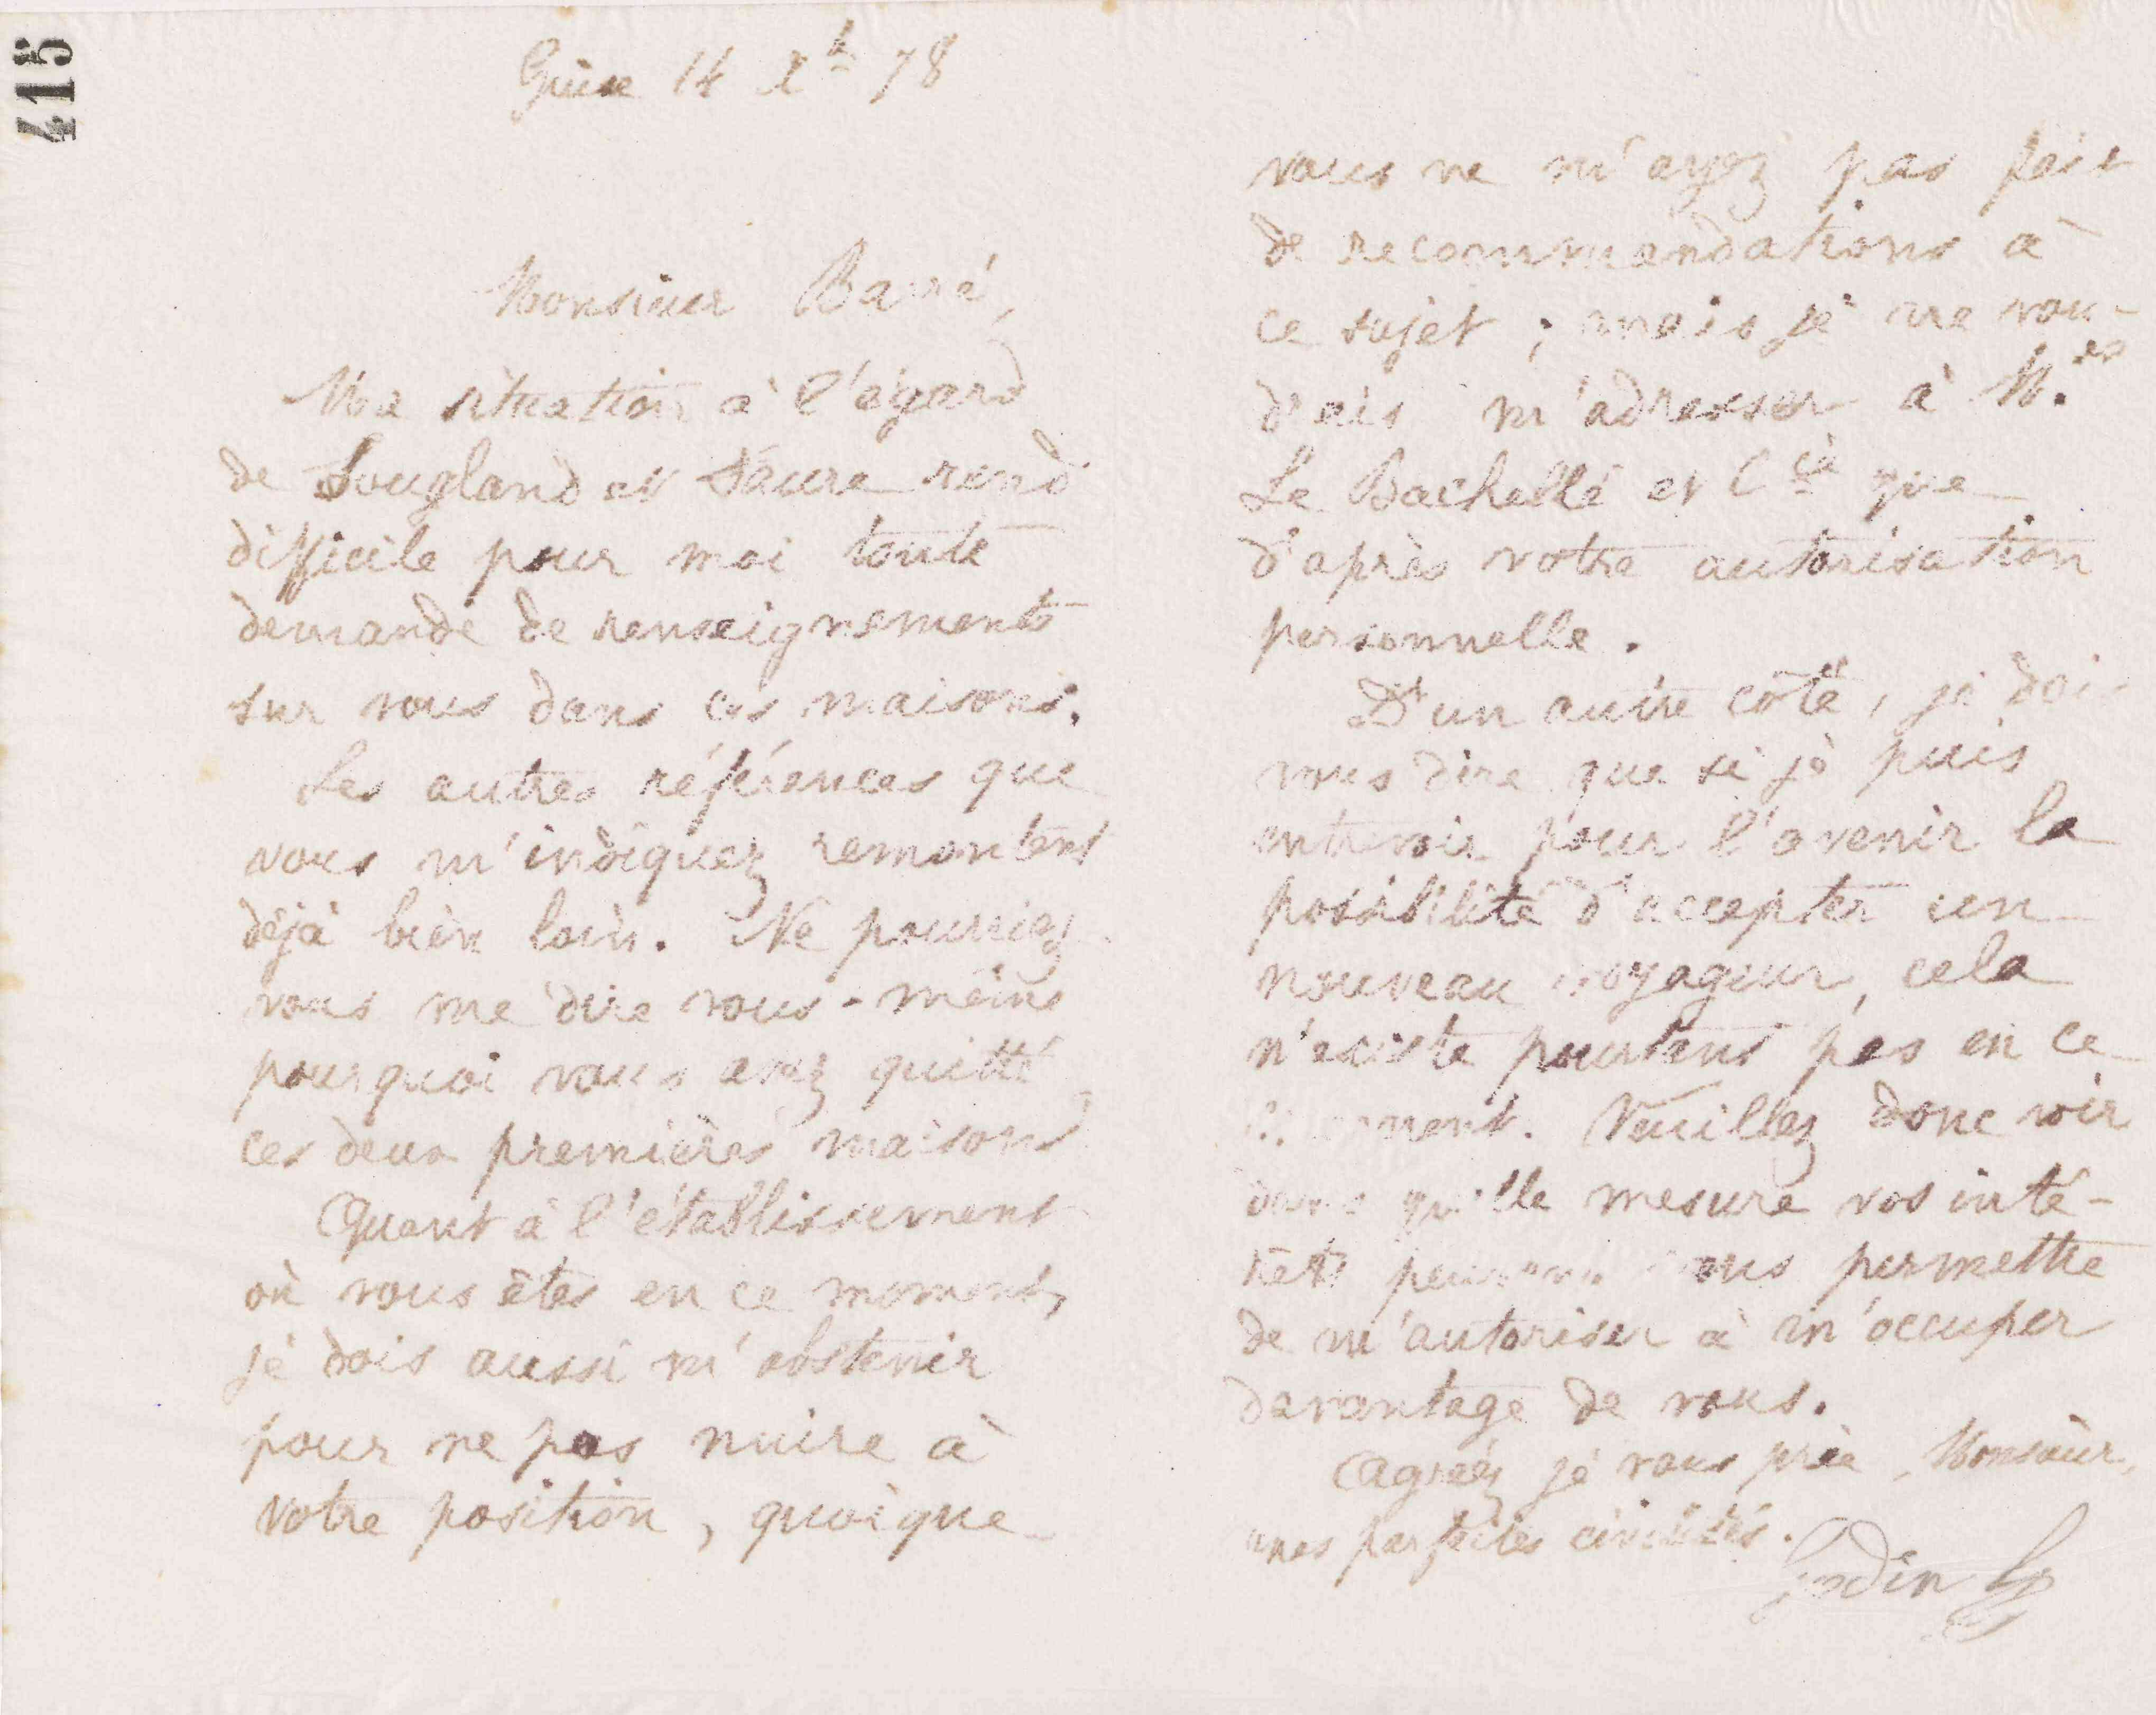 415
Guise 14 Xbre 78
Monsieur Barré,
Ma situation à l'égard
de Sougland et Faure rend
difficile pour moi toute
demande de renseignements
sur vous dans ces maisons.
Les autres références que
vous m'indiquez remontent
déjà bien loin. Ne pourriez
vous me dire vous-même
pourquoi vous avez quitté
ces deux premières maisons
Quant à l'établissement
où vous êtes en ce moment,
je dois aussi m'abstenir
pour ne pas nuire à
votre position, quoique
vous ne m'ayez pas fait
de recommandations à
ce sujet ; mais je ne vou-
drais m'adresser à M.rs
Le Bachellé et Cie que
d'après votre autorisation
personnelle.
D'un autre côté, je dois
vous dire que si je puis
entrevoir pour l'avenir la
possibilité d'accepter un
nouveau voyageur, cela
n'existe pourtant pas en ce
moment. Veuillez donc voir
dans quelle mesure vos inté-
rêts peuvent vous permettre
de m'autoriser à m'occuper
davantage de vous.
Agréez je vous prie, Monsieur,
mes parfaites civilités.
Godin